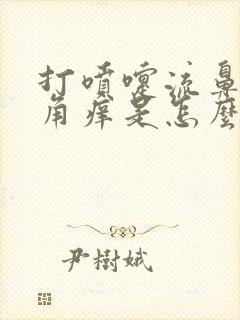 打噴嚏流鼻
角痒是怎麼
尹樹娥